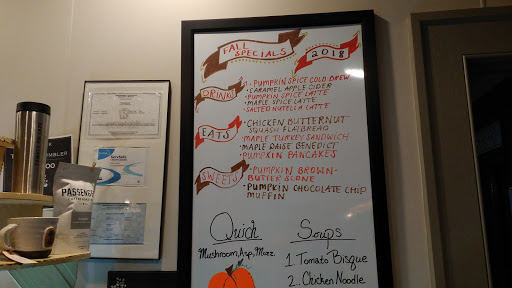 FALL SPECIALS
2018
DRINKS
PUMPKIN SPICE COLD BREW
• CARAMEL APPLE CIDER
• PUMPKIN SPICE LATTE
• MAPLE SPICE LATTE
• SALTED NUTELLA LATTE
EATS
• CHICKEN BUTTERNUT
SQUASH FLATBREAD
• MAPLE TURKEY SANDWICH
• MAPLE DAISE BENEDICT
• PUMPKIN PANCAKES
SWEETS
• PUMPKIN BROWN-
BUTTER SCONE
• PUMPKIN CHOCOLATE CHIP
MUFFIN
Quich
Mushroom, Asp, Mozz
Soups
1. Tomato Bisque
2. Chicken Noodle
ServSafe